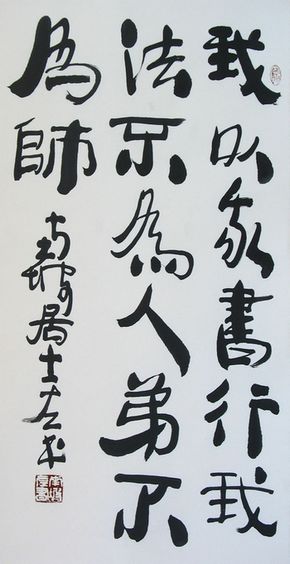 我以我書行我
法不為人弟不
為師
南坡居士左